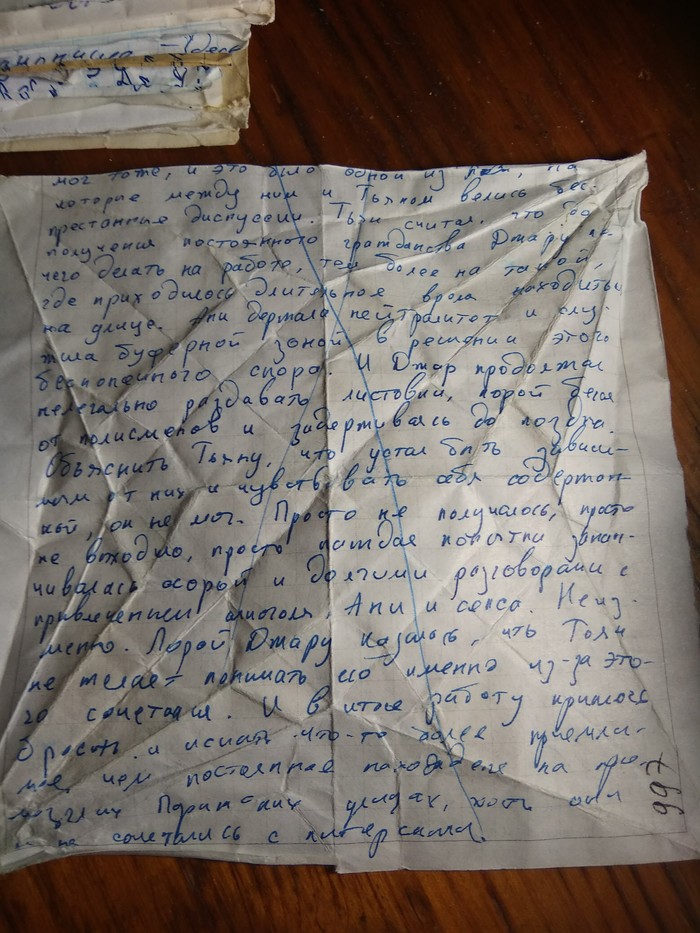 мог тоже, и это было одной из тем, на
которые между ним и Тьяном велись бес-
престанные дискуссии. Тьян считал, что до
получения постоянного гражданства Джару не-
чего делать на работе, тем более на такой,
где приходилось длительное время находиться
на улице. Ани держала нейтралитет и слу-
жила буферной зоной в решении этого
беспокойного спора. И Джар продолжал
нелегально раздавать листовки, порой бегая
от полисменов и задерживаясь до поздна.
Объяснить Тьяну, что устал быть зависи-
мым от них и чувствовать себя содержан-
кой, он не мог. Просто не получалось, просто
не выходило, просто каждая попытка закан-
чивалась ссорой и долгими разговорами с
привлечением алкоголя, Ани и секса. Неиз-
менно. Порой Джару казалось, что Тьян
не желает понимать его именно из-за это-
го сочетания. И в итоге работу пришлось
бросить и искать что-то более приемле-
мое, чем постоянное нахождение на про-
мозглых Парижских улицах, хоть они
и не сочетались с
997